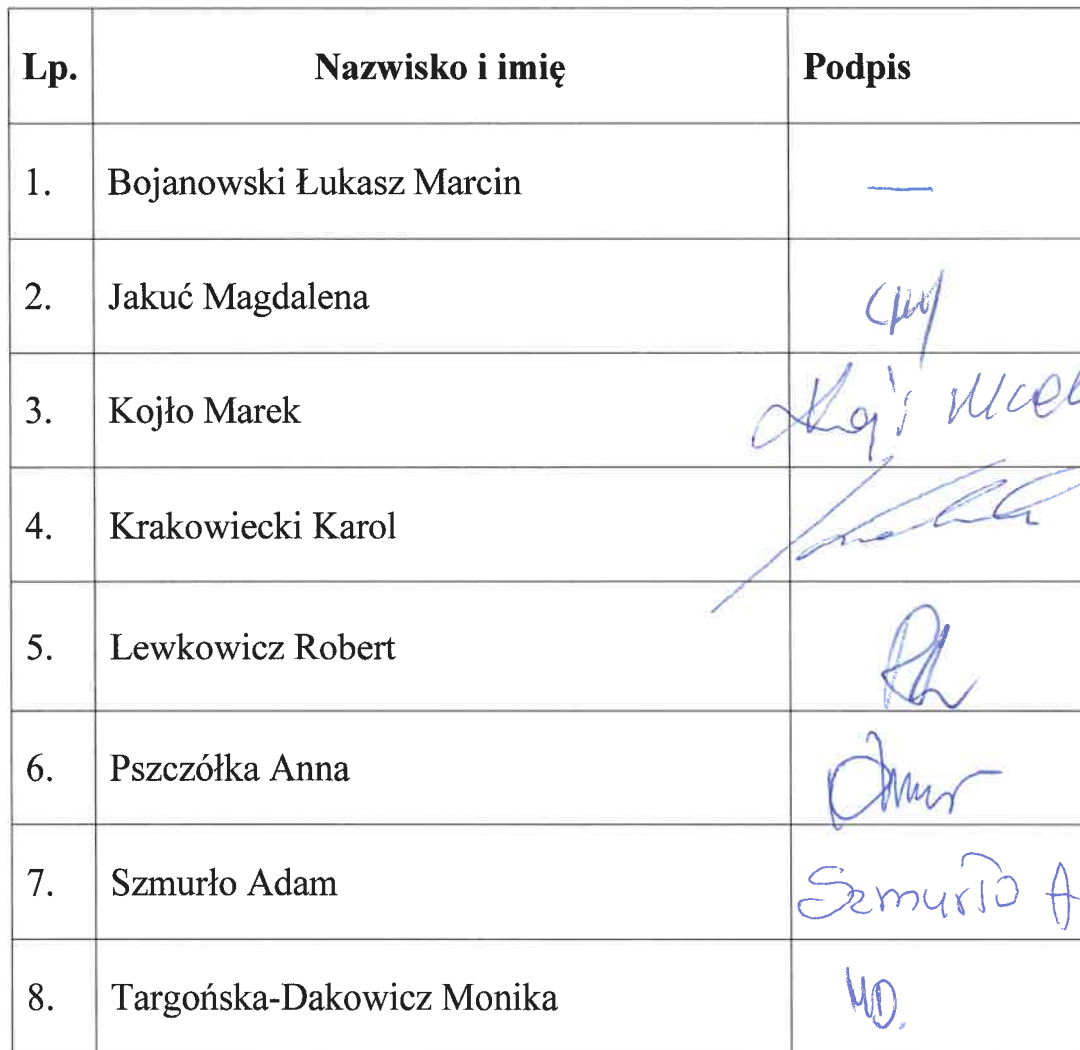 Lp. Nazwisko i imię Podpis
1. Bojanowski Łukasz Marcin —
2. Jakuć Magdalena
3. Kojło Marek
4. Krakowiecki Karol
5. Lewkowicz Robert
6. Pszczółka Anna
7. Szmurło Adam Szmurło A
8. Targońska-Dakowicz Monika MD.